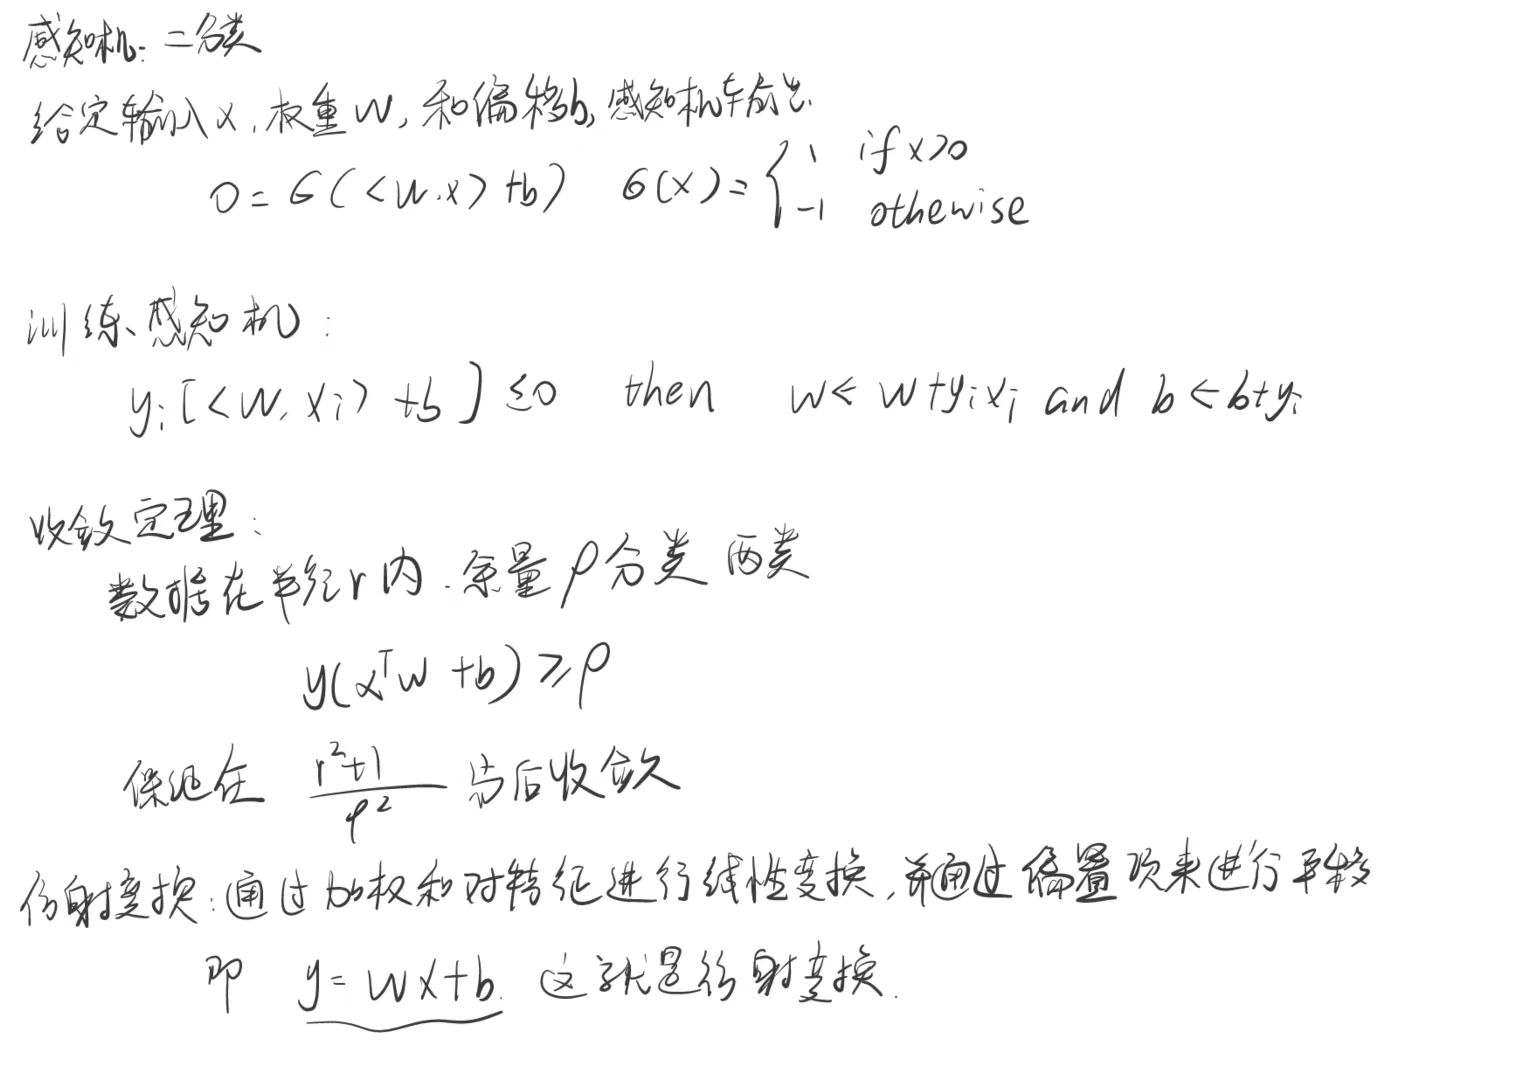 感知机: 二分类
给定输入x, 权重w, 和偏移b, 感知机输出
o = σ(<w.x> + b) σ(x) = { 1 if x>0
-1 othewise
训练感知机:
yi[<w, xi> + b] ≤0 then w← w+yixi and b ← b+yi
收敛定理:
数据在半径r内. 余量ρ分类 两类
y(xᵀw + b) ≥ρ
保证在 (r²+1)/ρ² 步后收敛
仿射变换: 通过加权和对特征进行线性变换, 并通过偏置项来进行平移
即 y = wx+b. 这就是仿射变换.